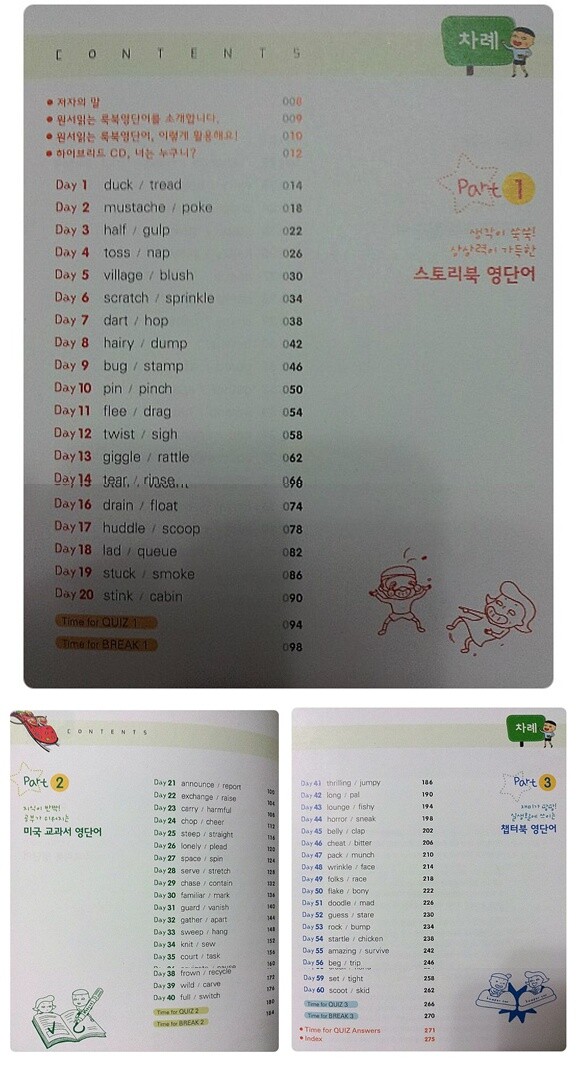 CONTENTS
차례
저자의 말 008
원서읽는 룩북영단어를 소개합니다. 009
원서읽는 룩북영단어, 이렇게 활용해요! 010
하이브리드 CD, 너는 누구니? 012
Day 1 duck / tread 014
Day 2 mustache / poke 018
Day 3 half / gulp 022
Day 4 toss / nap 026
Day 5 village / blush 030
Day 6 scratch / sprinkle 034
Day 7 dart / hop 038
Day 8 hairy / dump 042
Day 9 bug / stamp 046
Day 10 pin / pinch 050
Day 11 flee / drag 054
Day 12 twist / sigh 058
Day 13 giggle / rattle 062
Day 14 tear / rinse 066
Day 16 drain / float 074
Day 17 huddle / scoop 078
Day 18 lad / queue 082
Day 19 stuck / smoke 086
Day 20 stink / cabin 090
Time for QUIZ 1 094
Time for BREAK 1 098
Part 1
생각이 쑥쑥!
상상력이 가득한
스토리북 영단어
CONTENTS
Part 2
지식이 반짝!
공부가 쉬워지는
미국 교과서 영단어
Day 21 announce / report 100
Day 22 exchange / raise 104
Day 23 carry / harmful 108
Day 24 chop / cheer 112
Day 25 steep / straight 116
Day 26 lonely / plead 120
Day 27 space / spin 124
Day 28 serve / stretch 128
Day 29 chase / contain 132
Day 30 familiar / mark 136
Day 31 guard / vanish 140
Day 32 gather / apart 144
Day 33 sweep / hang 148
Day 34 knit / sew 152
Day 35 court / task 156
160
Day 38 frown / recycle
Day 39 wild / carve 172
Day 40 full / switch 176
Time for QUIZ 2 180
Time for BREAK 2 184
차례
Day 41 thrilling / jumpy 186
Day 42 long / pal 190
Day 43 lounge / fishy 194
Day 44 horror / sneak 198
Day 45 belly / clap 202
Day 46 cheat / bitter 206
Day 47 pack / munch 210
Day 48 wrinkle / face 214
Day 49 folks / race 218
Day 50 flake / bony 222
Day 51 doodle / mad 226
Day 52 guess / stare 230
Day 53 rock / bump 234
Day 54 startle / chicken 238
Day 55 amazing / survive 242
Day 56 beg / trip 246
Day 59 set / tight 258
Day 60 scoot / skid 262
Time for QUIZ 3 266
Time for BREAK 3 270
Time for QUIZ Answers 271
Index 275
Part 3
재미가 팡팡!
일생활에 쓰이는
챕터북 영단어